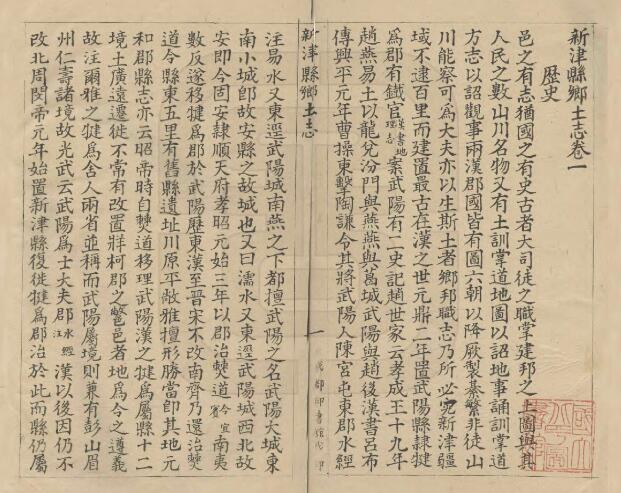 新津縣鄉土志卷一
歷史
邑之有志猶國之有史古者大司徒之職掌建邦之土圖與其
人民之數山川名物又有土訓掌道地圖以詔地事誦訓掌道
方志以詔觀事兩漢郡國皆有圖六朝以降厥製綦繁非徒山
川能察可爲大夫亦以生斯土者鄉邦職志乃所必究新津疆
域不逮百里而建置最古在漢之世元鼎二年置武陽縣隸犍
爲郡有鐵官漢書地理志案武陽有二史記趙世家云孝成王十九年
趙燕易土以龍兌汾門與燕燕以葛城武陽與趙後漢書呂布
傳興平元年曹操東擊陶謙令其將武陽人陳宮屯東郡水經
新津縣鄉土志
一
注易水又東逕武陽城南燕之下都擅武陽之名武陽大城東
南小城卽故安縣之故城也又曰濡水又東逕武陽城西北故
安卽今固安隸順天府孝昭元始三年以郡治僰道今宜賓南夷
數反遂移犍爲郡於武陽歷東漢至晉宋不改南齊乃還治僰
道今縣東五里有舊縣遺址川原平敞雅擅形勝當卽其地元
和郡縣志亦云昭帝時自僰道移理武陽漢之犍爲屬縣十二
境土廣遠遷徙不常有改置牂柯郡之鼈邑者地爲今之遵義
故注爾雅之犍爲舍人兩省並稱而武陽屬境則兼有彭山眉
州仁壽諸境故光武云武陽爲士大夫郡水經注漢以後因仍不
改北周閔帝元年始置新津縣復徙犍爲郡治於此而縣仍屬